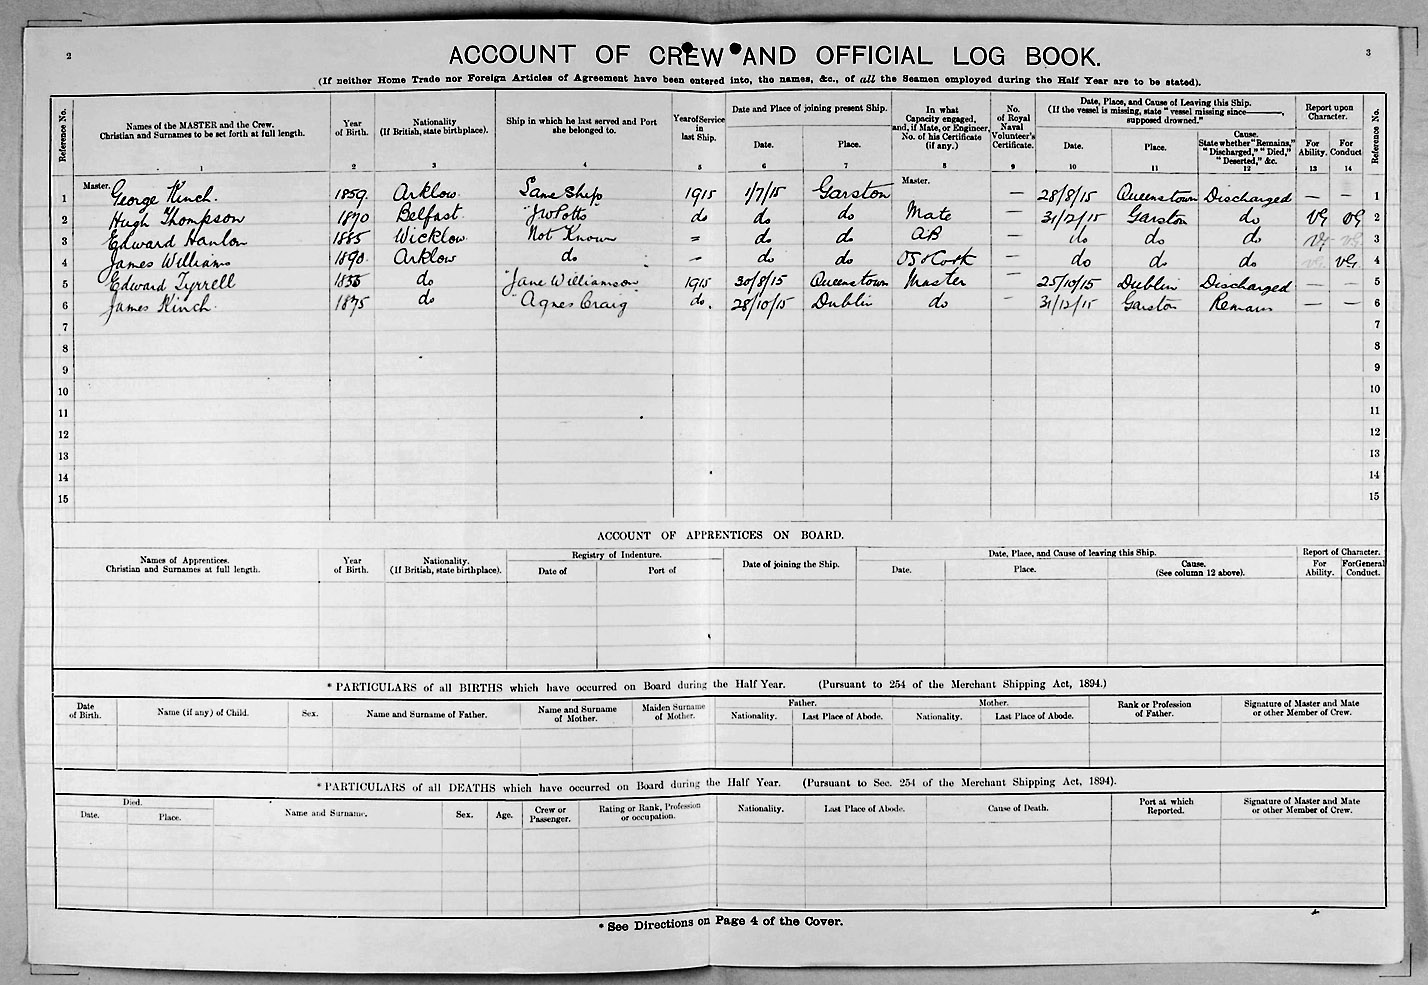 2
ACCOUNT OF CREW AND OFFICIAL LOG BOOK.
3
(If neither Home Trade nor Foreign Articles of Agreement have been entered into, the names, &c., of all the Seamen employed during the Half Year are to be stated).
Reference No. Names of the MASTER and the Crew. Christian and Surnames to be set forth at full length. Year of Birth. Nationality (If British, state birthplace). Ship in which he last served and Port she belonged to. Year of Service in last Ship. Date and Place of joining present Ship. Date. Place. In what Capacity engaged, and, if Mate, or Engineer, No. of his Certificate (if any.) No. of Royal Naval Volunteer's Certificate. Date, Place, and Cause of Leaving this Ship. (If the vessel is missing, state "vessel missing since ——, supposed drowned." Date. Place. Cause. State whether "Remains," "Discharged," "Died," "Deserted," &c. Report upon Character. For Ability. For Conduct Reference No.
1 2 3 4 5 6 7 8 9 10 11 12 13 14
1 Master. George Kinch. 1859. Arklow. Same Ship 1915 1/7/15 Garston Master. — 28/8/15 Queenstown Discharged — — 1
2 Hugh Thompson 1870 Belfast. "J W Potts" do do do Mate — 31/12/15 Garston do VG VG 2
3 Edward Hanlon 1885 Wicklow. Not Known = do do AB — do do do VG VG 3
4 James Williams 1890. Arklow do — do do OS & Cook do do do VG VG. 4
5 Edward Tyrrell do "Jane Williamson" 1915 30/8/15 Queenstown Master — 25/10/15 Dublin Discharged — — 5
6 James Kinch. 1875 do "Agnes Craig" do. 28/10/15 Dublin do — 31/12/15 Garston Remains — — 6
7 7
8 8
9 9
10 10
11 11
12 12
13 13
14 14
15 15
ACCOUNT OF APPRENTICES ON BOARD.
Names of Apprentices. Christian and Surnames at full length. Year of Birth. Nationality. (If British, state birthplace). Registry of Indenture. Date of Port of Date of joining the Ship. Date, Place, and Cause of leaving this Ship. Date. Place. Cause. (See column 12 above). Report of Character. For Ability. For General Conduct.
* PARTICULARS of all BIRTHS which have occurred on Board during the Half Year. (Pursuant to 254 of the Merchant Shipping Act, 1894.)
Date of Birth. Name (if any) of Child. Sex. Name and Surname of Father. Name and Surname of Mother. Maiden Surname of Mother. Father. Nationality. Last Place of Abode. Mother. Nationality. Last Place of Abode. Rank or Profession of Father. Signature of Master and Mate or other Member of Crew.
* PARTICULARS of all DEATHS which have occurred on Board during the Half Year. (Pursuant to Sec. 254 of the Merchant Shipping Act, 1894).
Died. Date. Place. Name and Surname. Sex. Age. Crew or Passenger. Rating or Rank, Profession or occupation. Nationality. Last Place of Abode. Cause of Death. Port at which Reported. Signature of Master and Mate or other Member of Crew.
* See Directions on Page 4 of the Cover.